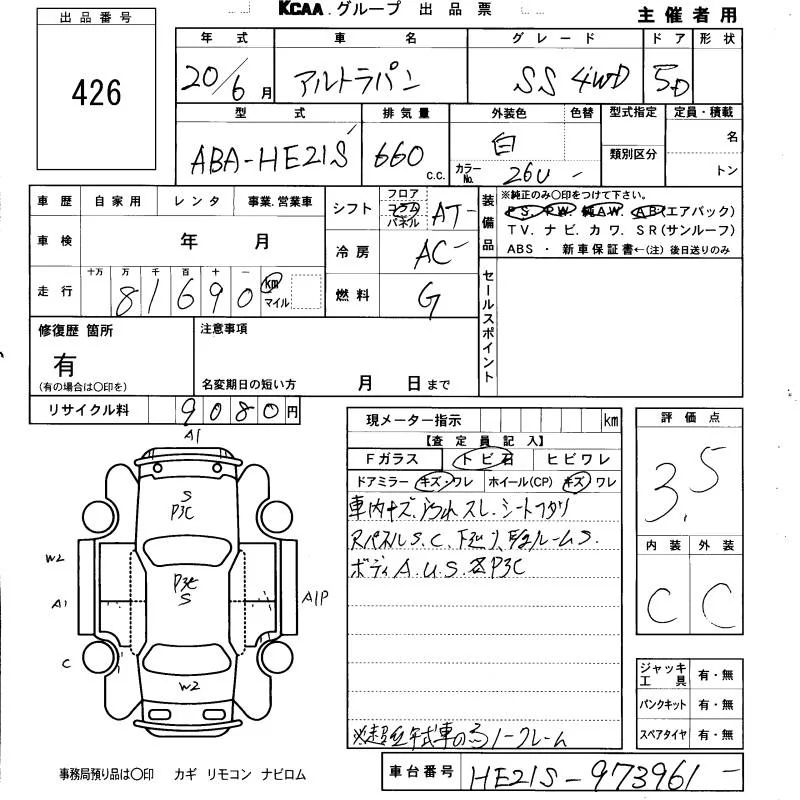 KCAA.グループ 出品票
主催者用
出品番号
426
年式 車名 グレード ドア 形状
20/6月 アルトラパン SS 4WD 5D
型式 排気量 外装色 色替 型式指定 定員・積載
ABA-HE21S 660 c.c. 白 名
類別区分
カラーNo. 26U - トン
車歴 自家用 レンタ 事業.営業車
シフト フロア コラム パネル AT-
装備品 ※純正のみ〇印をつけて下さい。
PS. PW. 純AW. AB(エアバック)
TV. ナビ. カワ. SR(サンルーフ)
ABS ・ 新車保証書←(注) 後日送りのみ
車検 年 月
冷房 AC-
走行 十万 万 千 百 十 一
81690 km マイル
燃料 G
セールスポイント
修復歴 箇所
有
(有の場合は〇印を)
注意事項
名変期日の短い方 月 日まで
リサイクル料 9080円
現メーター指示 km
【査定員記入】
Fガラス トビ石 ヒビワレ
ドアミラー キズ・ワレ ホイール(CP) キズ・ワレ
車内キズ.汚れ スレ.シート
S.C.
ボディA.U.S. P3C
ノークレーム
評価点
3.5
内装 外装
C C
ジャッキ工具 有・無
パンクキット 有・無
スペアタイヤ 有・無
A1
S
P3C
W2
P3C
S
A1
A1P
C
W2
事務局預り品は〇印 カギ リモコン ナビロム
車台番号 HE21S-973961-